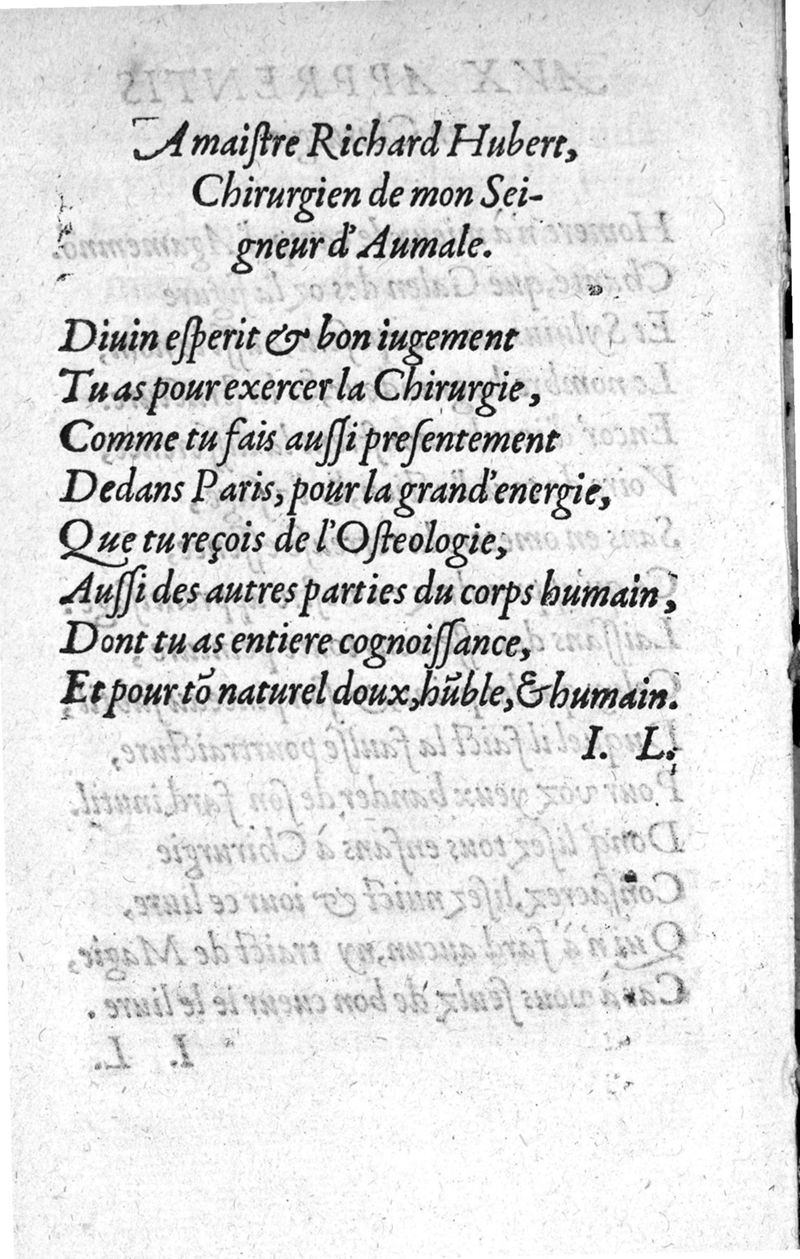 A maiſtre Richard Hubert,
Chirurgien de mon Sei-
gneur d'Aumale.
Diuin eſperit & bon iugement
Tu as pour exercer la Chirurgie,
Comme tu fais auſſi preſentement
Dedans Paris, pour la grand'energie,
Que tu reçois de l'Oſteologie,
Auſſi des autres parties du corps humain,
Dont tu as entiere cognoiſſance,
Et pour tõ naturel doux, hũble, & humain.
I. L.